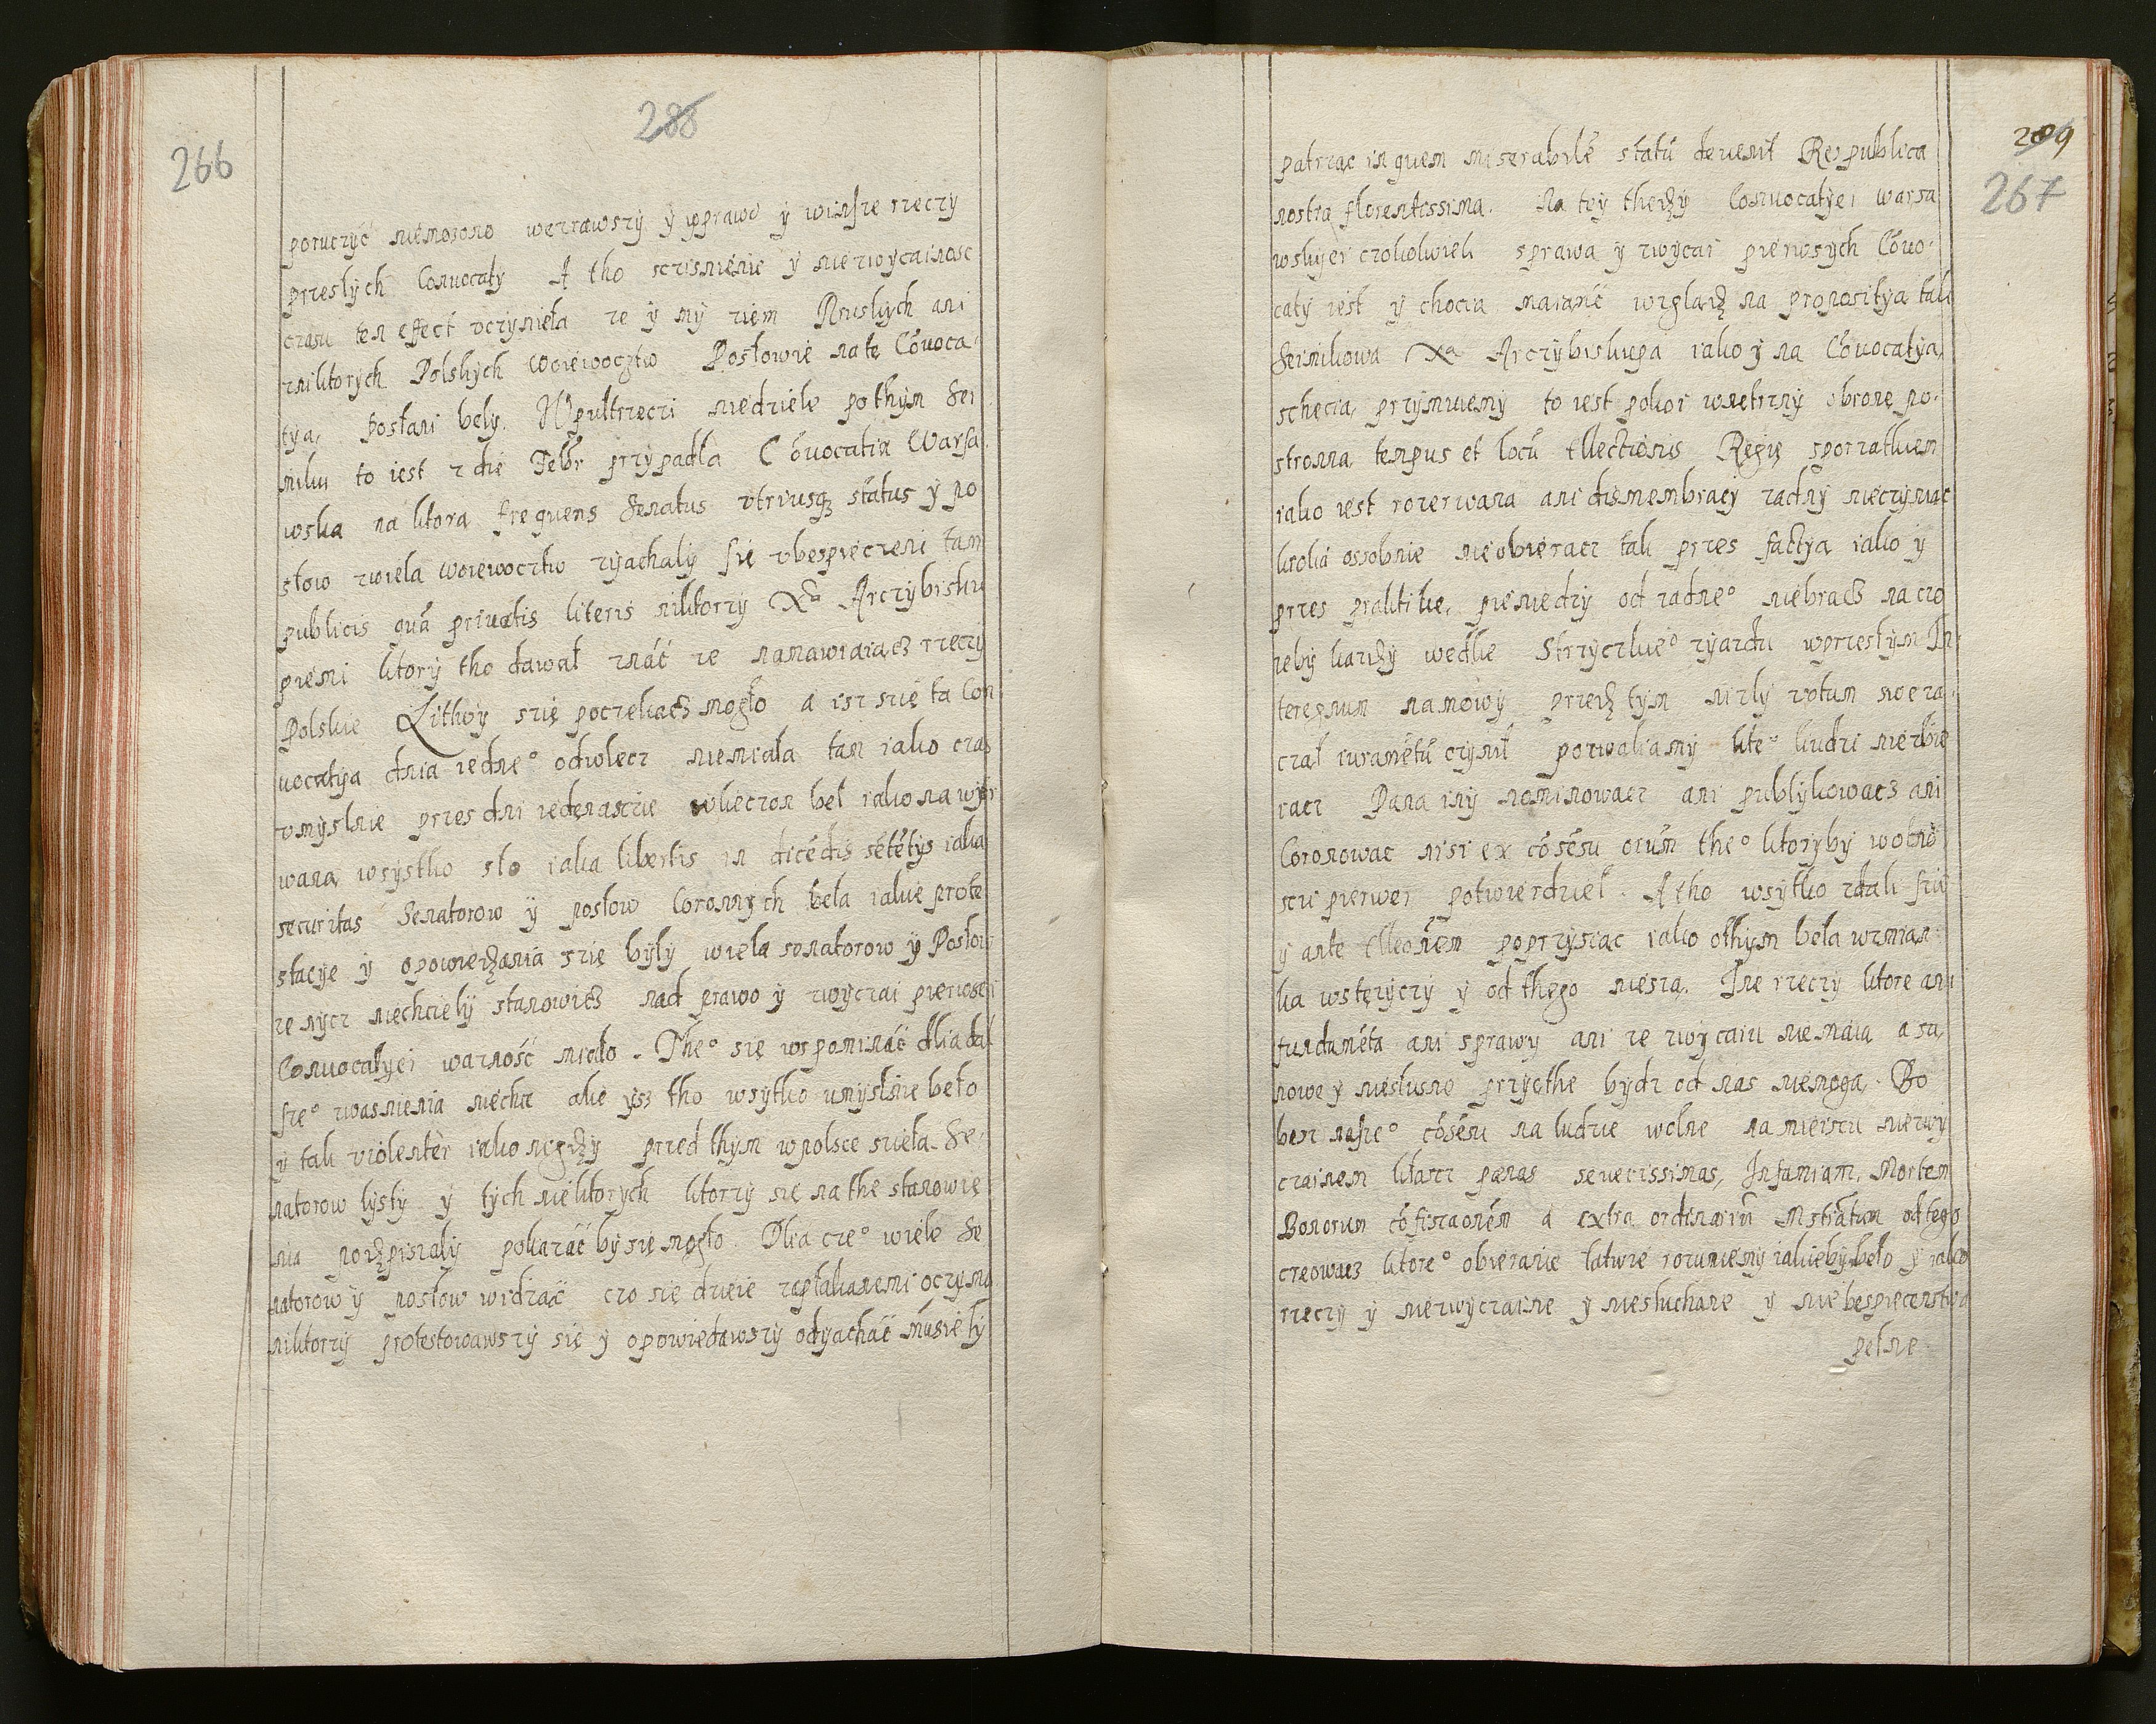 288
266
poruczyć niemozono wezrawszy ÿ wprawo ÿ winsze rzeczy
przeslych Conuocaty A tho sczisnienie ÿ niezwyczainosc
czasu ten effect vczynieła ze ÿ mÿ ziem Ruskych ani
zniktorych Polskych woiewocztw Posłowie natę Cōuoca-
tÿa, posłani bely. Wpułtrzeci niedziele po thym Sei
miku to iest z die Febr przypadla Cōuocatia Warsa
wska na ktora frequens Senatus vtriusq status ÿ po
słow zwiela woiewocztw zÿachalÿ się vbespieczeni tam
publicis quā priuatis literis niktorzy Xa Arczybisku
piemi ktorÿ tho dawał znać ze namawiaiacz rzeczy
Polskie Lithwÿ szię poczekacz mogło a isz szię ta Con
uocatÿa dnia iedne° odwlecz niemiała tam iako czas
vmyslnie przes dni iedenaszcie wkieczon bel iako na wyr
wana, wsÿstko sło iaka libertis in dicēdis sētētÿs iaka
securitas Senatorow ÿ posłow Coronnych beła iakie prote
stacÿe ÿ opowiedzania szię bÿlÿ wiela senatorow ÿ Posłow
ze nÿcz niechcielÿ stanowicz nad prawo ÿ zwÿczai pierwsei
Conuocatÿei warność miało. The° się wspominać dlia dal
sze° zwasnienia niechce ale ÿsz tho wsÿtko umÿslnie beło
ÿ tak violenter iako nigdzÿ przed thÿm wpolsce niela. Se-
natorow lystÿ ÿ tÿch niektorych ktorzÿ się na the stanowie
nia podzpisalÿ pokazać bÿ się mogło. Dlia cze° wiele Se
natorow ÿ posłow widzać czo się dzieie zapłakanemi oczÿma
niktorzÿ protestowawszÿ się ÿ opowiedawszÿ odÿachać musielÿ
289
267
patrzac in quem miserabilē statū deuenit Respublica
nostra florentissima. Na tÿ thedzÿ Conuocatÿei warsa
wskÿei czokolwiek sprawa ÿ zwÿcai pierwsÿch Cōuo-
catÿ iest ÿ chocia maianć wzglandz na propositÿa tak
Seimikowa Xa Arczÿbiskupa iako ÿ na Cōuocatÿa,
schecia, przÿmuiemÿ to iest pokoi wnetrznÿ obronę po-
stronna, tempus et locū Ellectionis Regię sporzatkiem
iako iest rozerwana ani dismembracÿ zadnÿ nieczÿniac
krolia ossobnie nieobieracz tak przes factÿa iako ÿ
przes praktike, pieniedzÿ od zadne° niebracz na czo
zebÿ kazdzÿ wedlie Strzyczkie° zÿazdu wprzeslÿm In-
teregnum namowÿ przedz tÿm nizlÿ votum swe za-
czal iuramētū czÿnil pozwaliamÿ kte° liudzi niezbie
racz Pana inÿ nominowacz ani publÿkowacz ani
Coronowac nisi ex cōsēsu oiūm the° ktorÿbÿ wolno
sczi pierwei potwierdziel. A tho wsÿtko zdali się
ÿ ante Elleonem poprzysiac iako othÿm beła wzmian
ka wsteryczÿ ÿ od thego niesza. Ine rzeczÿ ktore ani
fundumēta ani sprawÿ ani ze zwÿcaiu niemaia, a sa,
nowe ÿ niesłusne przÿethe bÿdz od nas niemoga. Bo
besz nasze° cōsēsu na ludzie wolne na mieiscu niezwÿ
czainem kłascz pœnas seuerissimas, Infamiam, Mortem
Bonorum cōfiscaonēm a extra ordinariū Mstratum od tego
creowacz ktore° obieranie łatwie rozumiemÿ iakiebÿ beło ÿ iako
rzeczÿ ÿ niezwÿczaine ÿ niesłuchane ÿ niebespieczenstwa
pełne